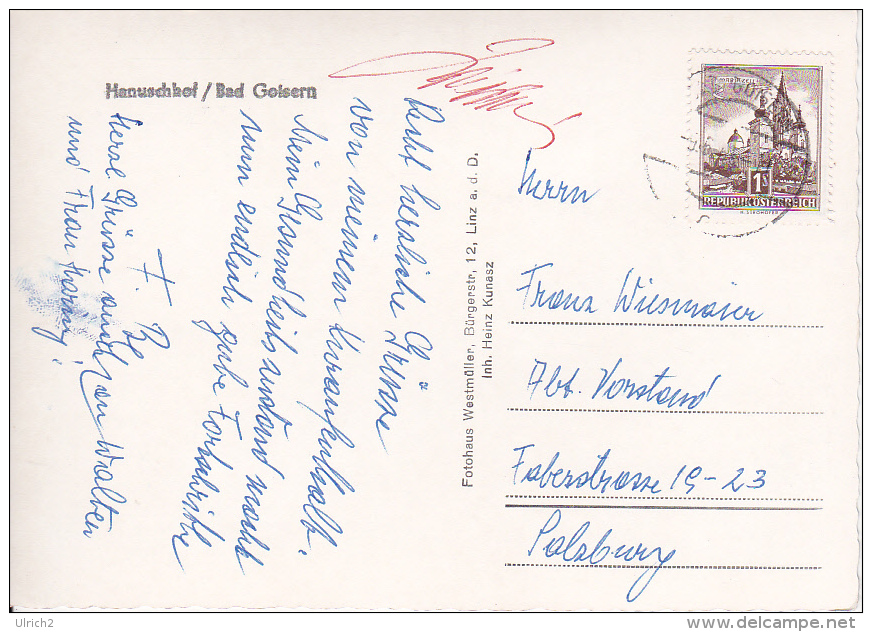 Hanuschhof / Bad Goisern
Recht herzliche Grüsse
von meinem Kuraufenthalt.
Mein Gesundheitszustand macht
nun endlich gute Fortschritte
Herzl Grüsse auch an Walter
und Frau
Fotohaus Westmüller, Bürgerstr, 12, Linz a. d. D.
Inh. Heinz Kunasz
MARIAZELL
1S
REPUBLIK ÖSTERREICH
Herrn
Franz Wiesmaier
Abt. Vorstand
Faberstrasse 19-23
Salzburg
Ulrich2
delcampe.net